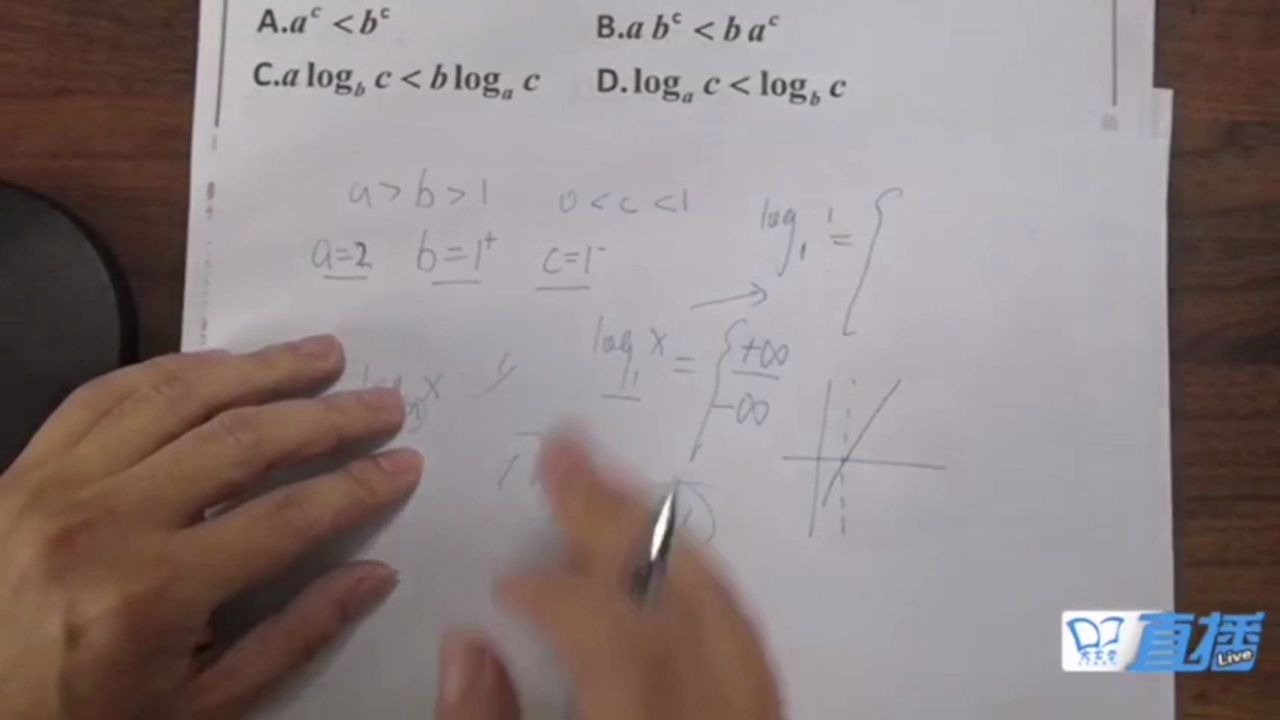 A.aᶜ < bᶜ B.a bᶜ < b aᶜ
C.a log_b c < b log_a c D.log_a c < log_b c
a > b > 1 0 < c < 1 log₁ 1 = {
a=2 b=1⁺ c=1⁻
log₁ x = { +∞
-∞
直播
Live